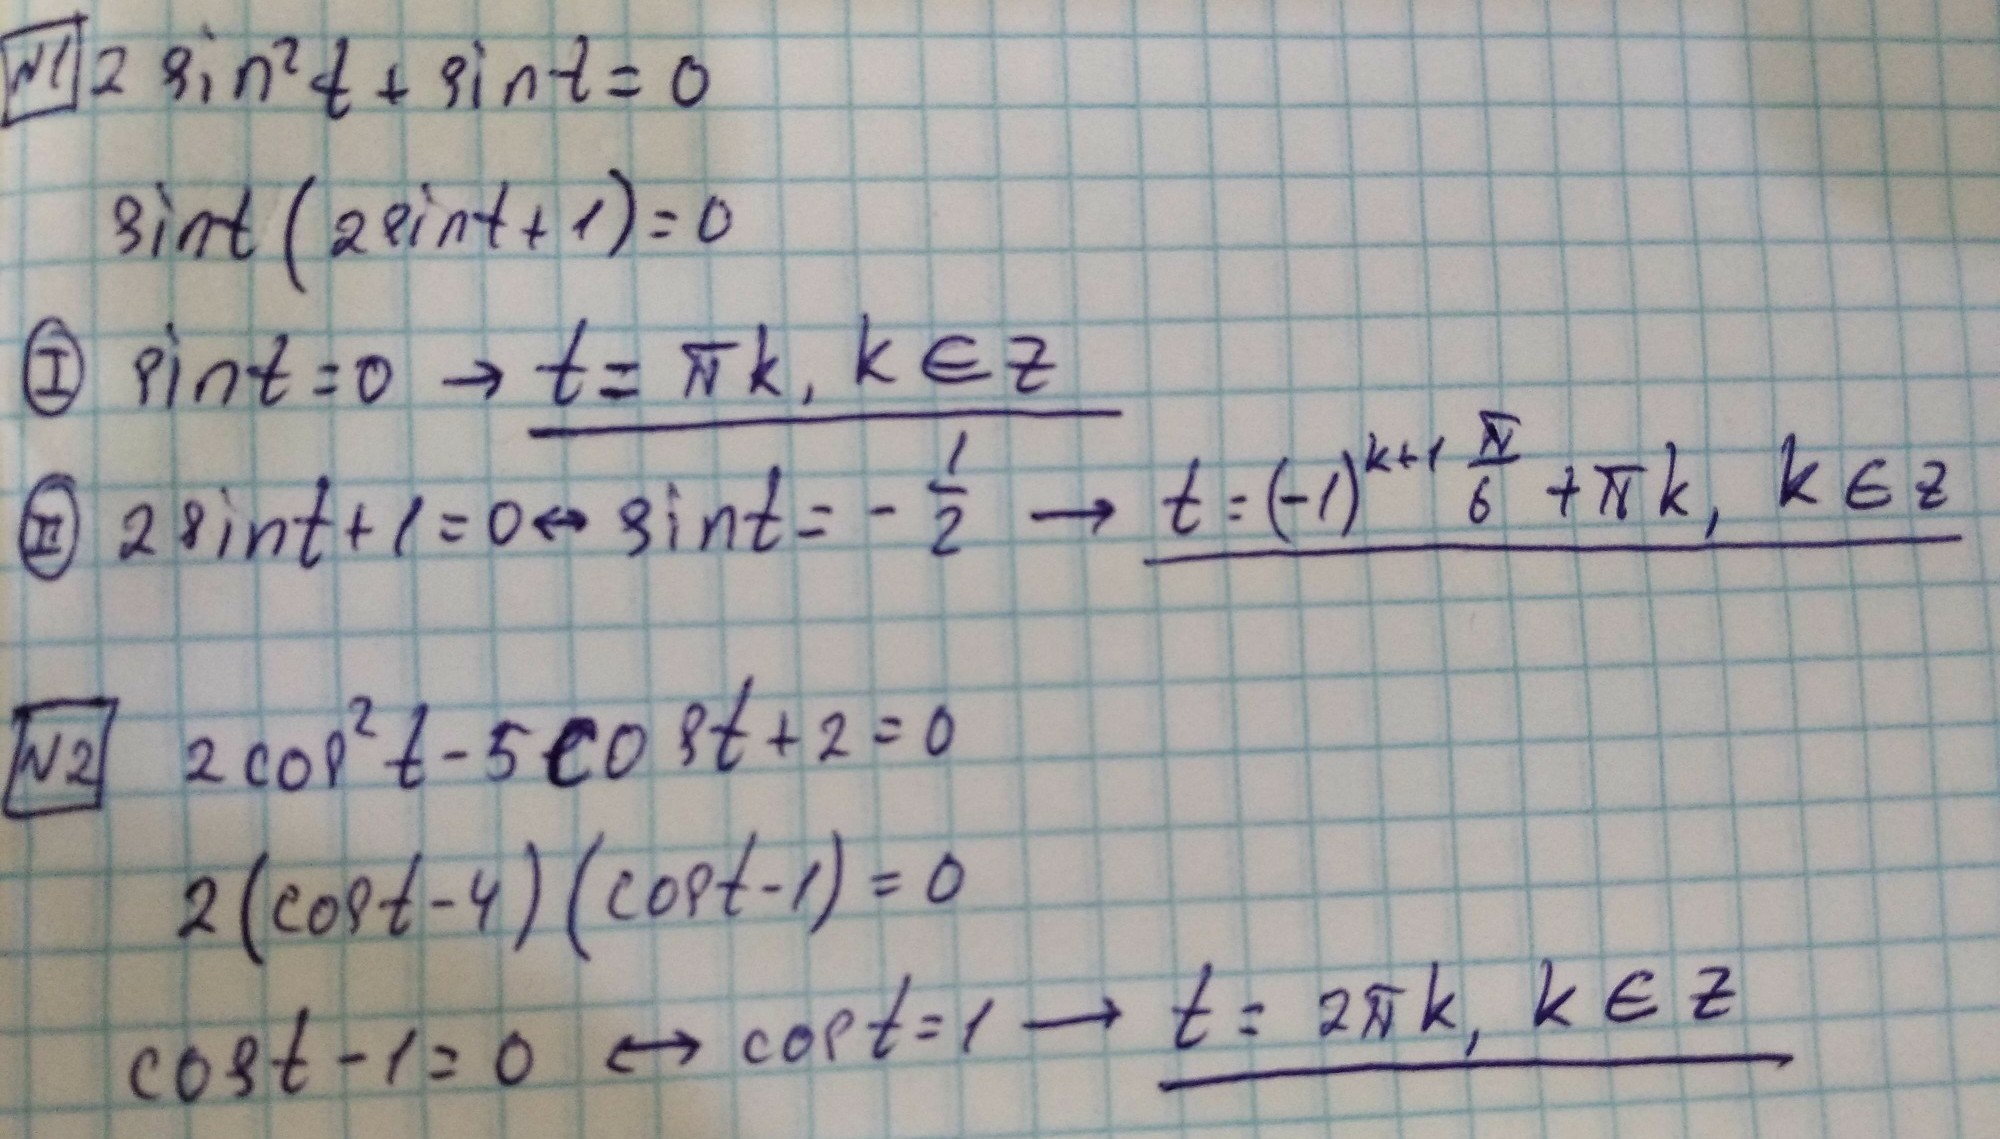 N1 2 sin²t + sint = 0
sint (2sint + 1) = 0
I sint = 0 → t = πk, k ∈ z
II 2sint + 1 = 0 ↔ sint = - 1/2 → t = (-1)^(k+1) π/6 + πk, k ∈ z
N2 2cos²t - 5cost + 2 = 0
2(cost - 4)(cost - 1) = 0
cost - 1 = 0 ↔ cost = 1 → t = 2πk, k ∈ z